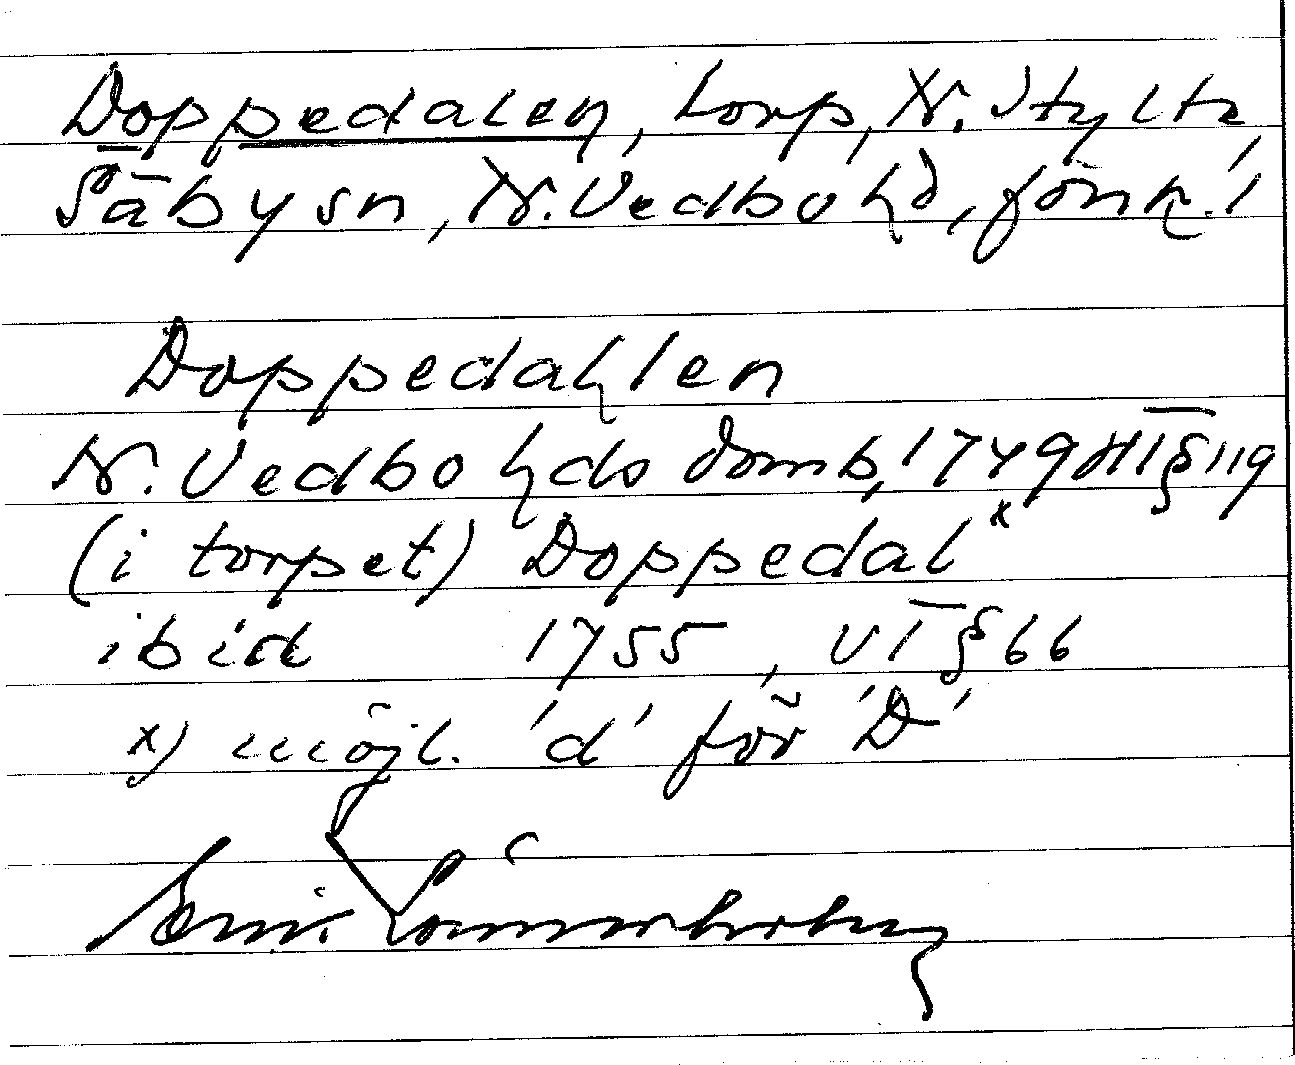 Doppedalen, torp, N. Stylta,
Säbysn, N. Vedbo hd, Jönk. l
Doppedahlen
N. Vedbo hds domb, 1749 HT § 119
(i torpet) Doppedal x
ibid 1755, VT § 66
x) möjl. 'd' för 'D'